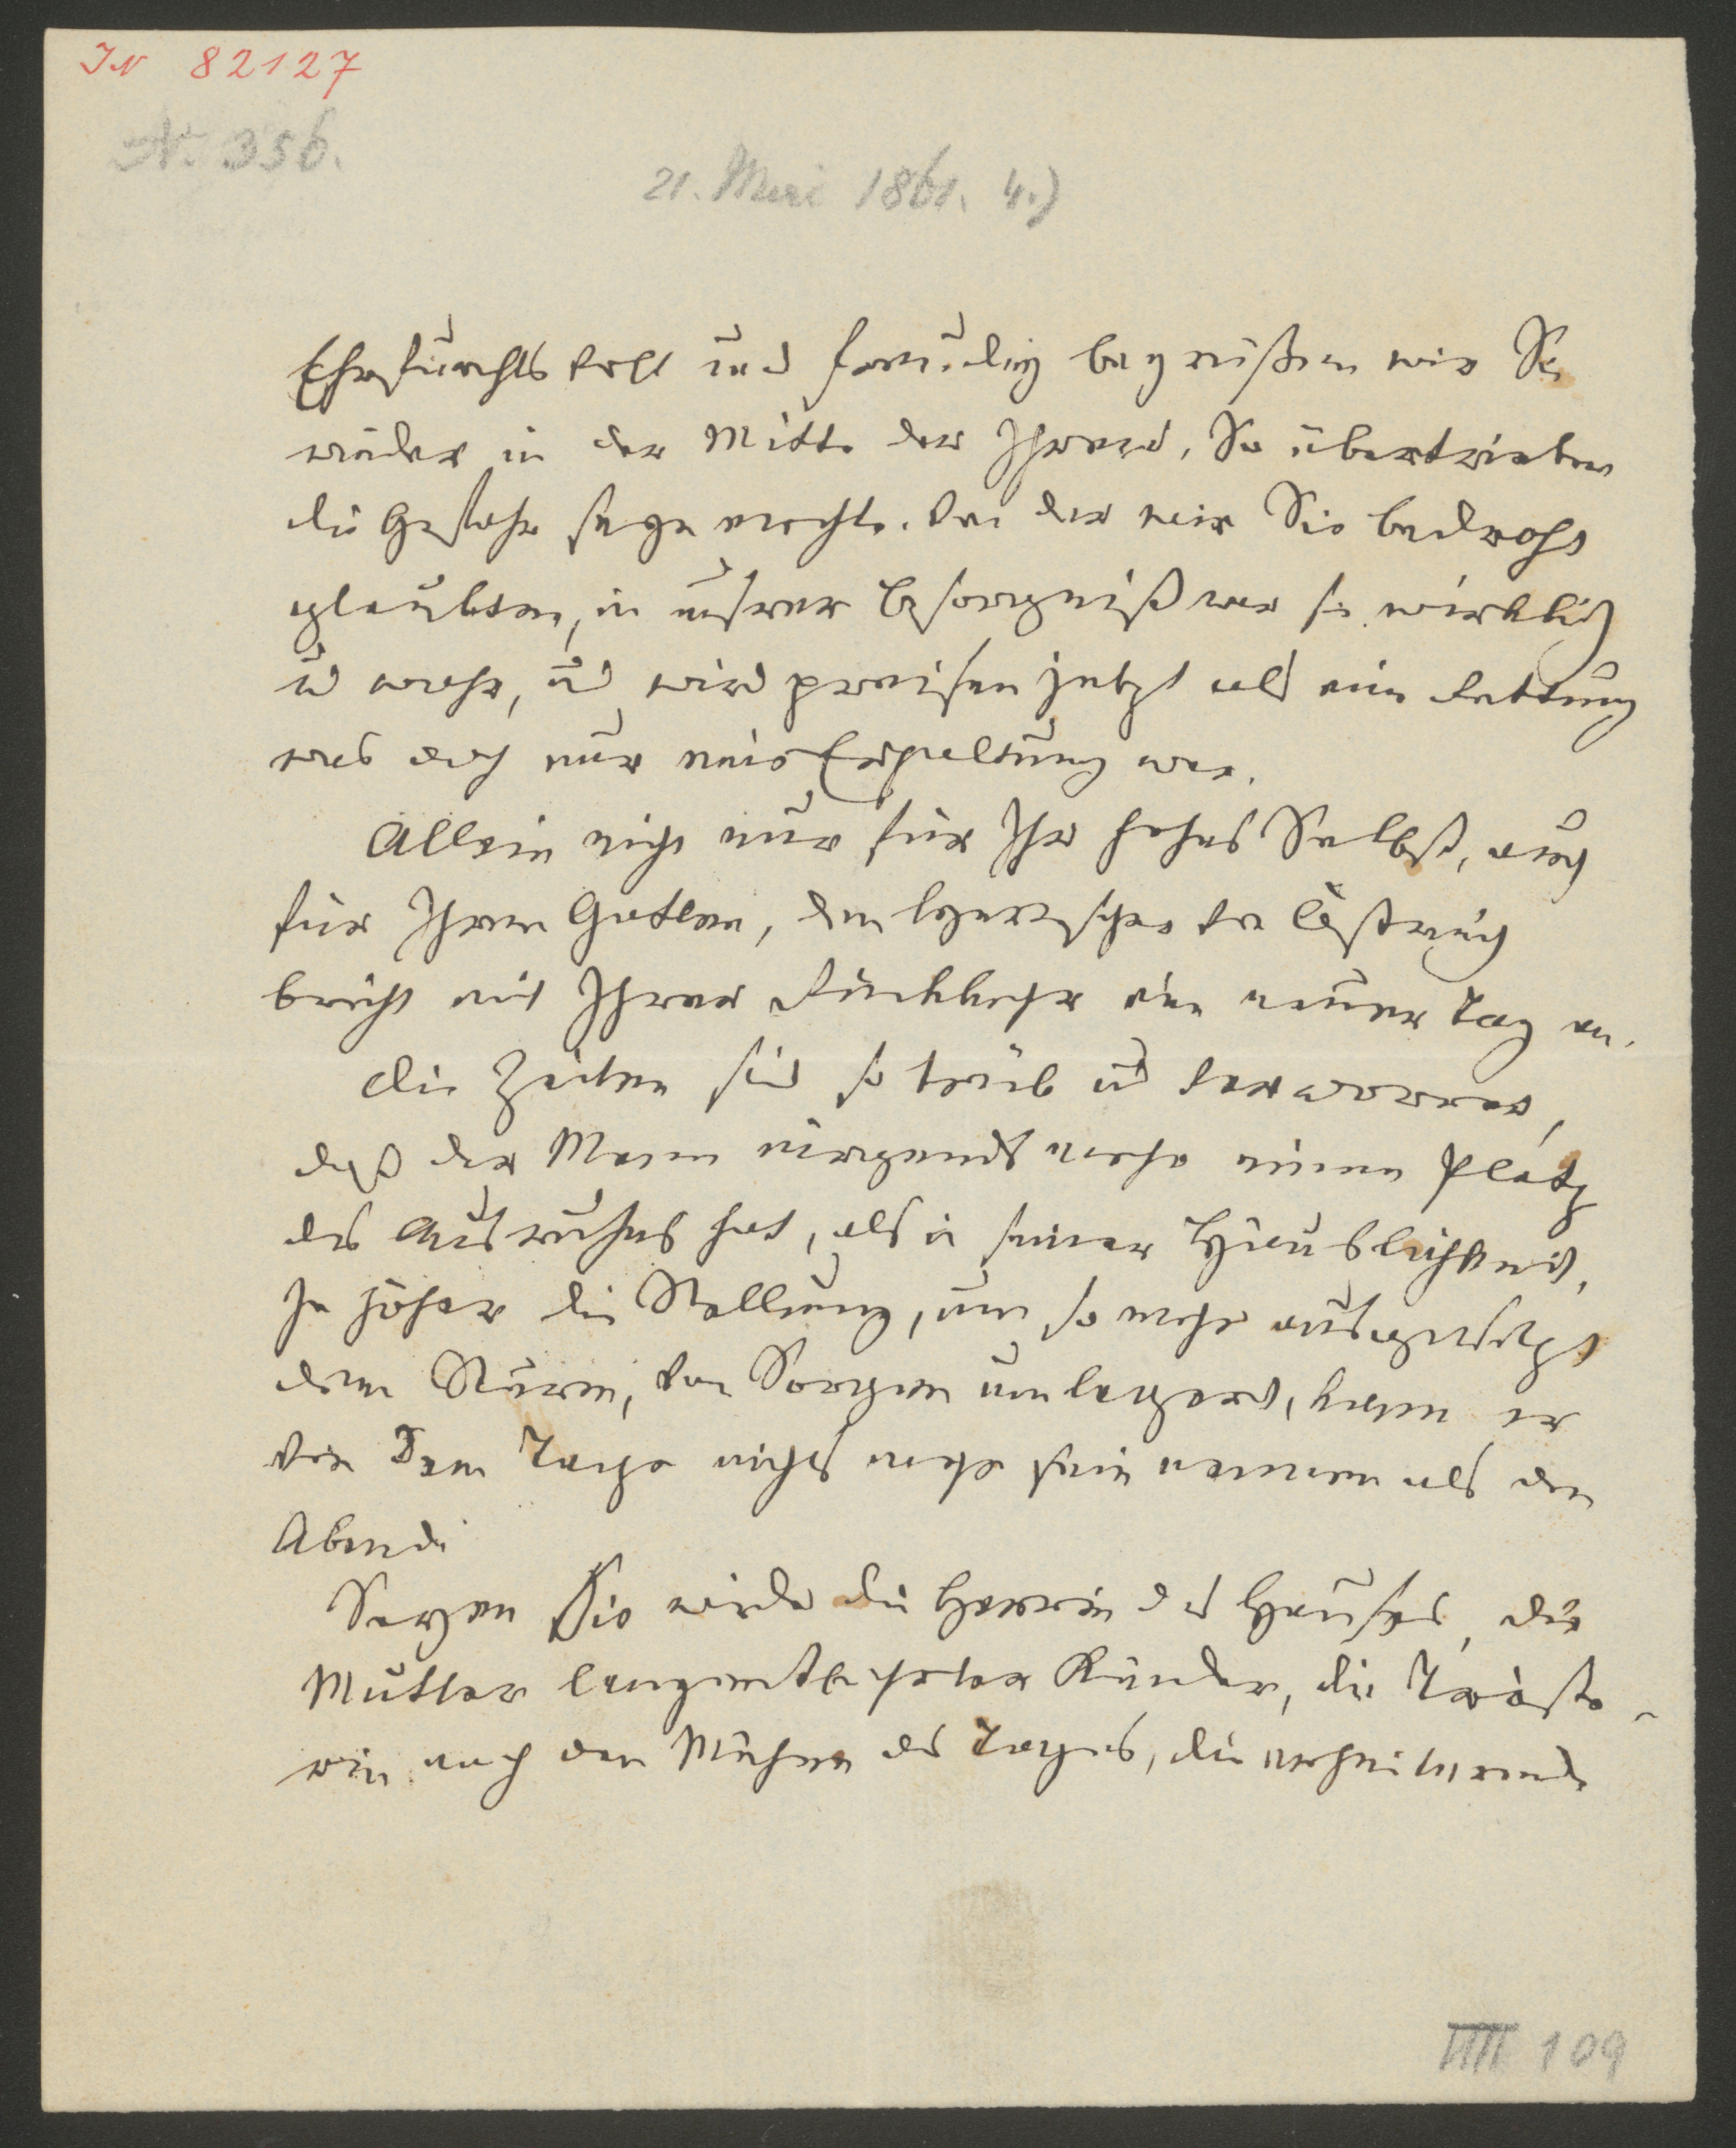 IN 82127
N. 356.
21. Mai 1861. 4.)
Ehrfurchtsvoll und freudig begrüßen wir Sie
wieder in der Mitte der Ihren. So übertrieben
die Gefahr sein mochte von der wir Sie bedroht
glaubten, in unsrer Besorgniß war sie wirklich
u wahr, und wir preisen jetzt als eine Rettung
was doch nur eine Erhaltung war.
Allein nicht nur für Ihr hohes Selbst, auch
für Ihren Gatten, den Herrscher von Östreich
bricht mit Ihrer Rückkehr ein neuer Tag an.
Die Zeiten sind so trüb und verworren,
daß der Mann nirgends mehr einen Platz
des Ausruhens hat, als in seiner Häuslichkeit.
Je höher die Stellung, um so mehr ausgesetzt
dem Sturm, von Sorgen umlagert, kann er
von dem Tage nichts mehr sein nennen als den
Abend.
Seyen Sie wieder die Herrin des Hauses, die
Mutter langentbehrter Kinder, die Tröste-
rin nach den Mühen des Tages, die erheiternde
IIIII 109